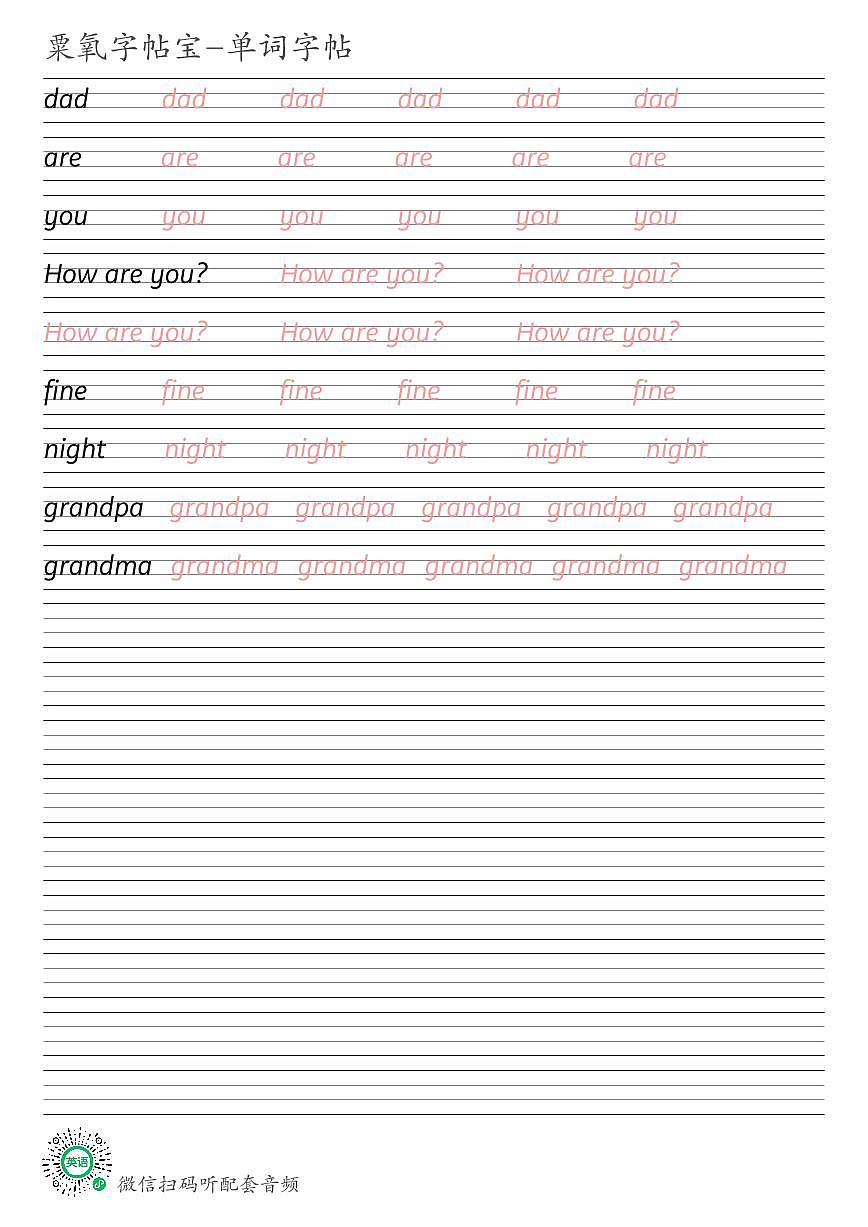 粟氧字帖宝-单词字帖
dad dad dad dad dad dad
are are are are are are
you you you you you you
How are you? How are you? How are you?
How are you? How are you? How are you?
fine fine fine fine fine fine
night night night night night night
grandpa grandpa grandpa grandpa grandpa grandpa
grandma grandma grandma grandma grandma grandma
英语
微信扫码听配套音频